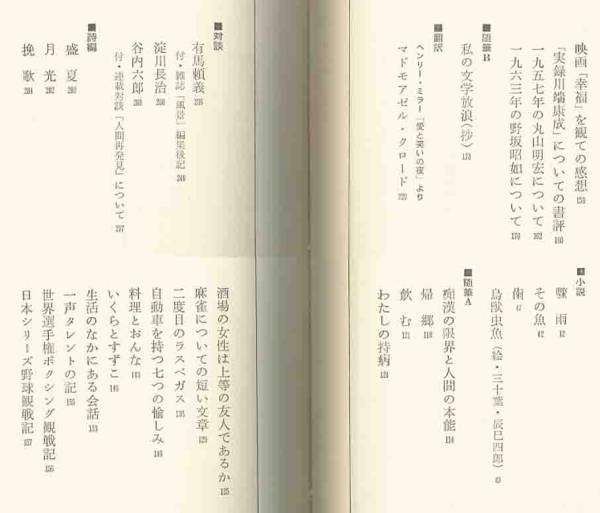 ■小説
驟雨 12
その魚 42
歯 47
鳥獣虫魚（絵・三十葉・辰巳四郎）
■随筆A
痴漢の限界と人間の本能 114
帰郷 118
飲む 121
わたしの持病
酒場の女性は上等の友人であるか 125
麻雀についての短い文章
二度目のラスベガス 135
自動車を持つ七つの愉しみ 140
料理とおんな 143
いくらとすずこ 146
生活のなかにある会話 153
一声タレントの記 155
世界選手権ボクシング観戦記 156
日本シリーズ野球観戦記 157
映画「幸福」を観ての感想 158
「実録川端康成」についての書評 160
一九五七年の丸山明宏について 162
一九六三年の野坂昭如について 170
■随筆B
私の文学放浪（抄） 178
■翻訳
ヘンリー・ミラー「愛と笑いの夜」より
マドモアゼル・クロード 220
■対談
有馬頼義 236
付・雑誌「風景」編集後記 248
淀川長治 250
谷内六郎 268
付・連載対談「人間再発見」について 287
■詩編
盛夏 290
月光 292
挽歌 294